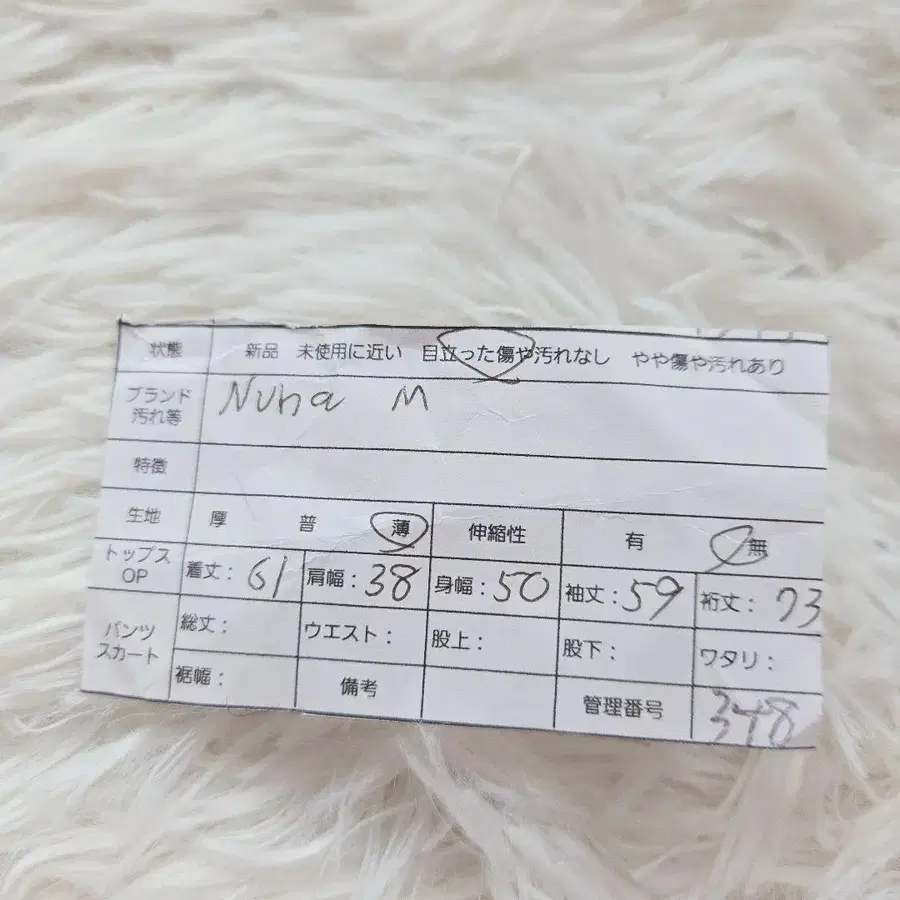 状態 新品 未使用に近い 目立った傷や汚れなし やや傷や汚れあり
ブランド
汚れ等
Nuna M
特徴
生地 厚 普 薄 伸縮性 有 無
トップス
OP
着丈：61 肩幅：38 身幅：50 袖丈：59 裄丈：73
パンツ
スカート
総丈： ウエスト： 股上： 股下： ワタリ：
裾幅： 備考 管理番号 348